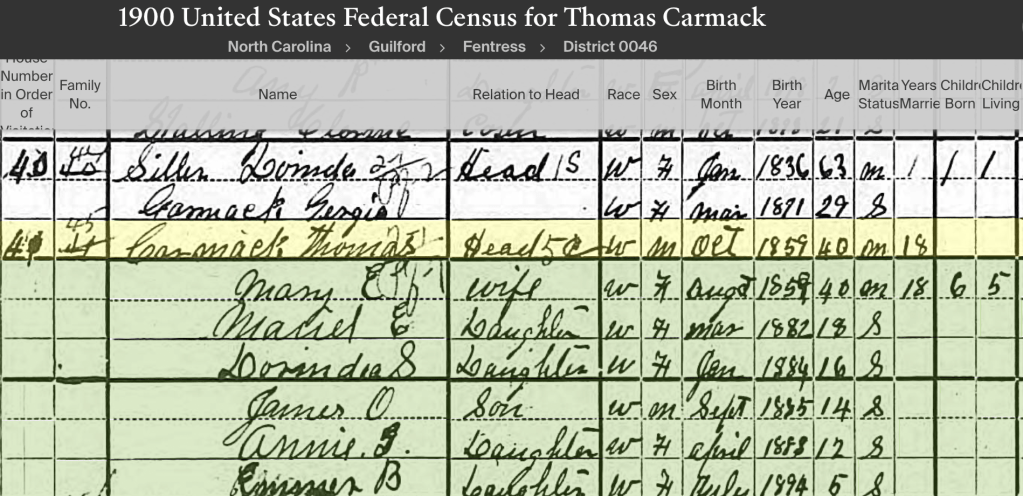 1900 United States Federal Census for Thomas Carmack
North Carolina > Guilford > Fentress > District 0046
House Number in Order of Visitation
Family No.
Name
Relation to Head
Race
Sex
Birth Month
Birth Year
Age
Marita Status
Years Marrie
Childr Born
Childre Living
40 Head W F Jan 1836 63 m 1 1 1
Carmack Georgia W F mar 1871 29 S
41 Carmack Thomas Head W m Oct 1859 40 m 18
Mary E wife W F Augt 1859 40 m 18 6 5
E Daughter W F mar 1882 18 S
Dorinda S Daughter W F Jan 1884 16 S
James O Son W m Sept 1885 14 S
Annie Daughter W F April 12 S
B Daughter W F July 1894 5 S